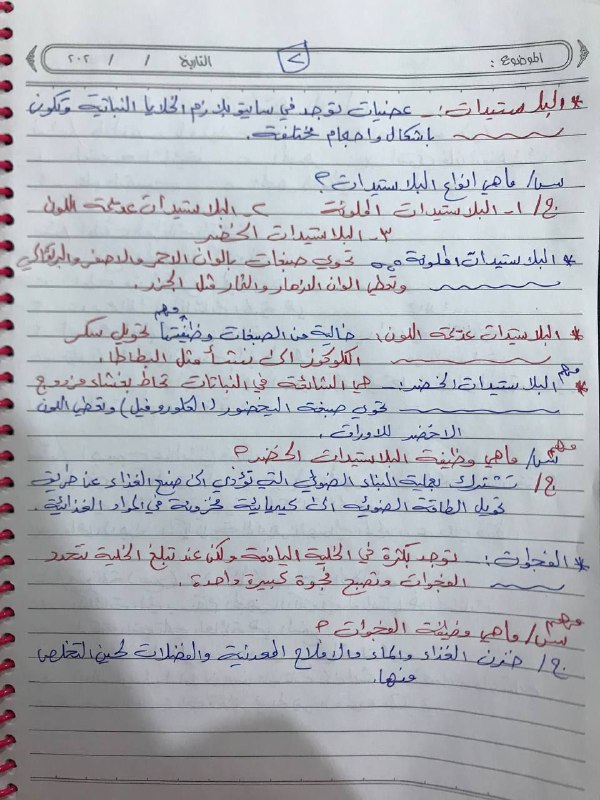 الموضوع : ٢ التاريخ / / ٢٠٢
* البلاستيدات :- عضيات توجد في سايتوبلازم الخلايا النباتية وتكون
باشكال واحجام مختلفة.
س/ ماهي انواع البلاستيدات ؟
ج/ ١- البلاستيدات الملونة ٢- البلاستيدات عديمة اللون
٣- البلاستيدات الخضر
* البلاستيدات الملونة :- تحوي صبغات بالوان الاحمر والاصفر والبرتقالي
وتعطي الوان الازهار والثمار مثل الجزر.
مهم
* البلاستيدات عديمة اللون :- خالية من الصبغات وظيفتها تحويل سكر
الكلوكوز الى نشأ مثل البطاطا.
مهم
* البلاستيدات الخضر :- هي الشائعة في النباتات تحاط بغشاء مزدوج
تحوي صبغة اليخضور (الكلوروفيل) وتعطي اللون
الاخضر للاوراق .
مهم
س/ ماهي وظيفة البلاستيدات الخضر ؟
ج/ تشترك بعملية البناء الضوئي التي تؤدي الى صنع الغذاء عن طريق
تحويل الطاقة الضوئية الى كيميائية مخزونة في المواد الغذائية .
* الفجوات :- توجد بكثرة في الخلية اليافعة ولكن عند تبلغ الخلية تتحد
الفجوات وتصبح فجوة كبيرة واحدة .
مهم
س/ ماهي وظيفة الفجوات ؟
ج/ خزن الغذاء والماء والاملاح المعدنية والفضلات لحين التخلص
منها.